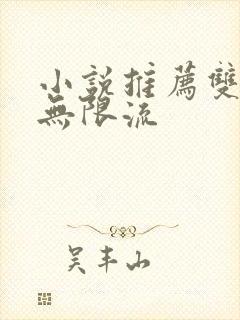 小說推薦雙
無限流
吳丰山